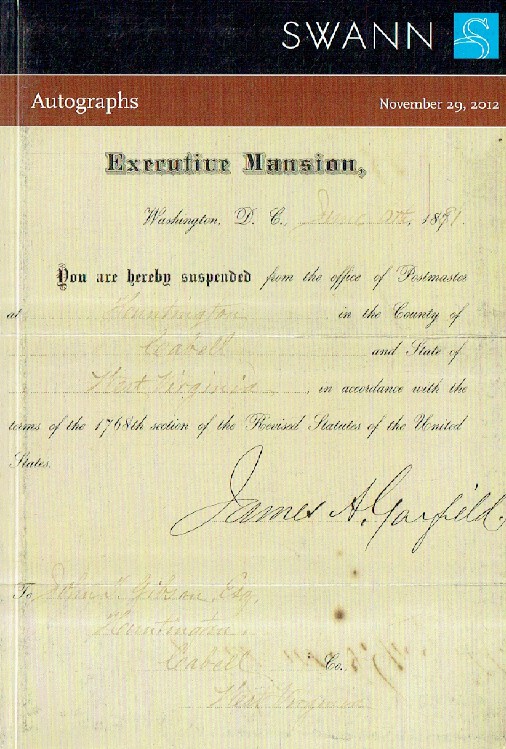 SWANN S
Autographs
November 29, 2012
Executive Mansion,
Washington, D. C., 1881.
You are hereby suspended from the office of Postmaster
at Huntington in the County of
Cabell and State of
West Virginia, in accordance with the
terms of the 1768th section of the Revised Statutes of the United
States.
James A. Garfield.
To John Gibson, Esq.
Huntington.
Cabell Co.,
West Virginia